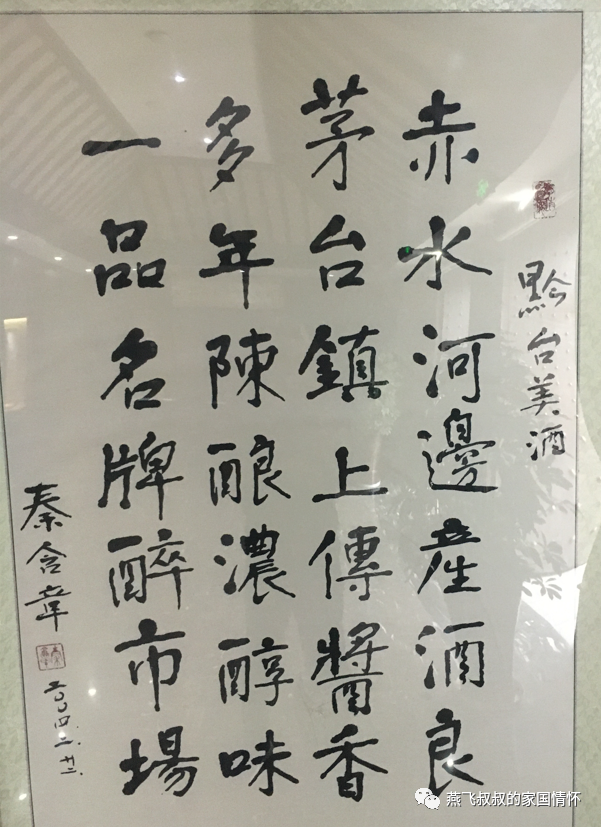 黔台美酒
赤水河邊產酒良
茅台鎮上傳醬香
多年陳酿濃醇味
一品名牌醉市場
秦含章
二〇〇四.二.廿二.
燕飞叔叔的家国情怀